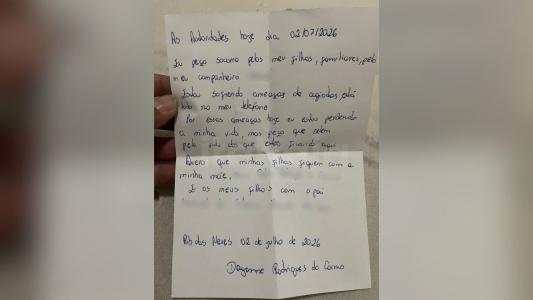 As Autoridades hoje dia 02/07/2026
Eu peço socorro pelos meu filhos, familiares, pelo
meu companheiro
Estou sofrendo ameaças de agiotas, está
tudo no meu telefone
Por essas ameaças hoje eu estou perdendo
a minha vida, mas peço que zelem
pela vida do que estão ficando aqui
Quero que minhas filhas fiquem com a
minha mãe,
E os meus filhos com o pai
Rib das Neves 02 de julho de 2026
Dayanne Rodrigues do Carmo